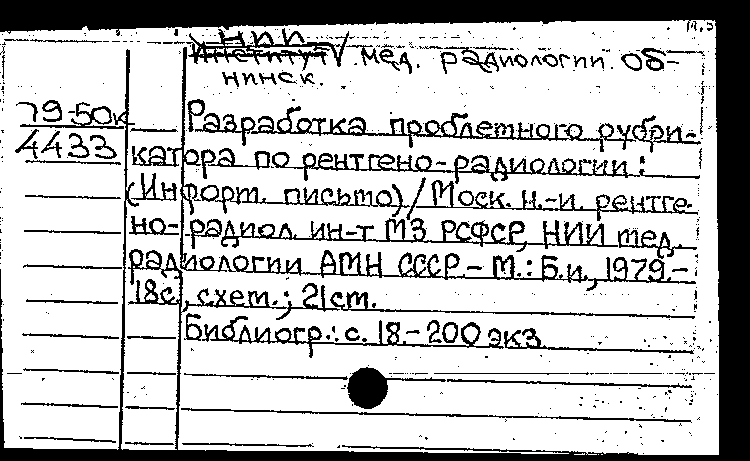 М.5
НИИ
Институт мед. радиологии. Об-
нинск.
79-50к Разработка проблемного рубри-
4433 катора по рентгено-радиологии:
(Информ. письмо)/Моск. н.-и. рентге-
но-радиол. ин-т МЗ РСФСР, НИИ мед.
радиологии АМН СССР.- М.: Б.и., 1979.-
18с., схем.; 21см.
Библиогр.: с. 18.- 200 экз